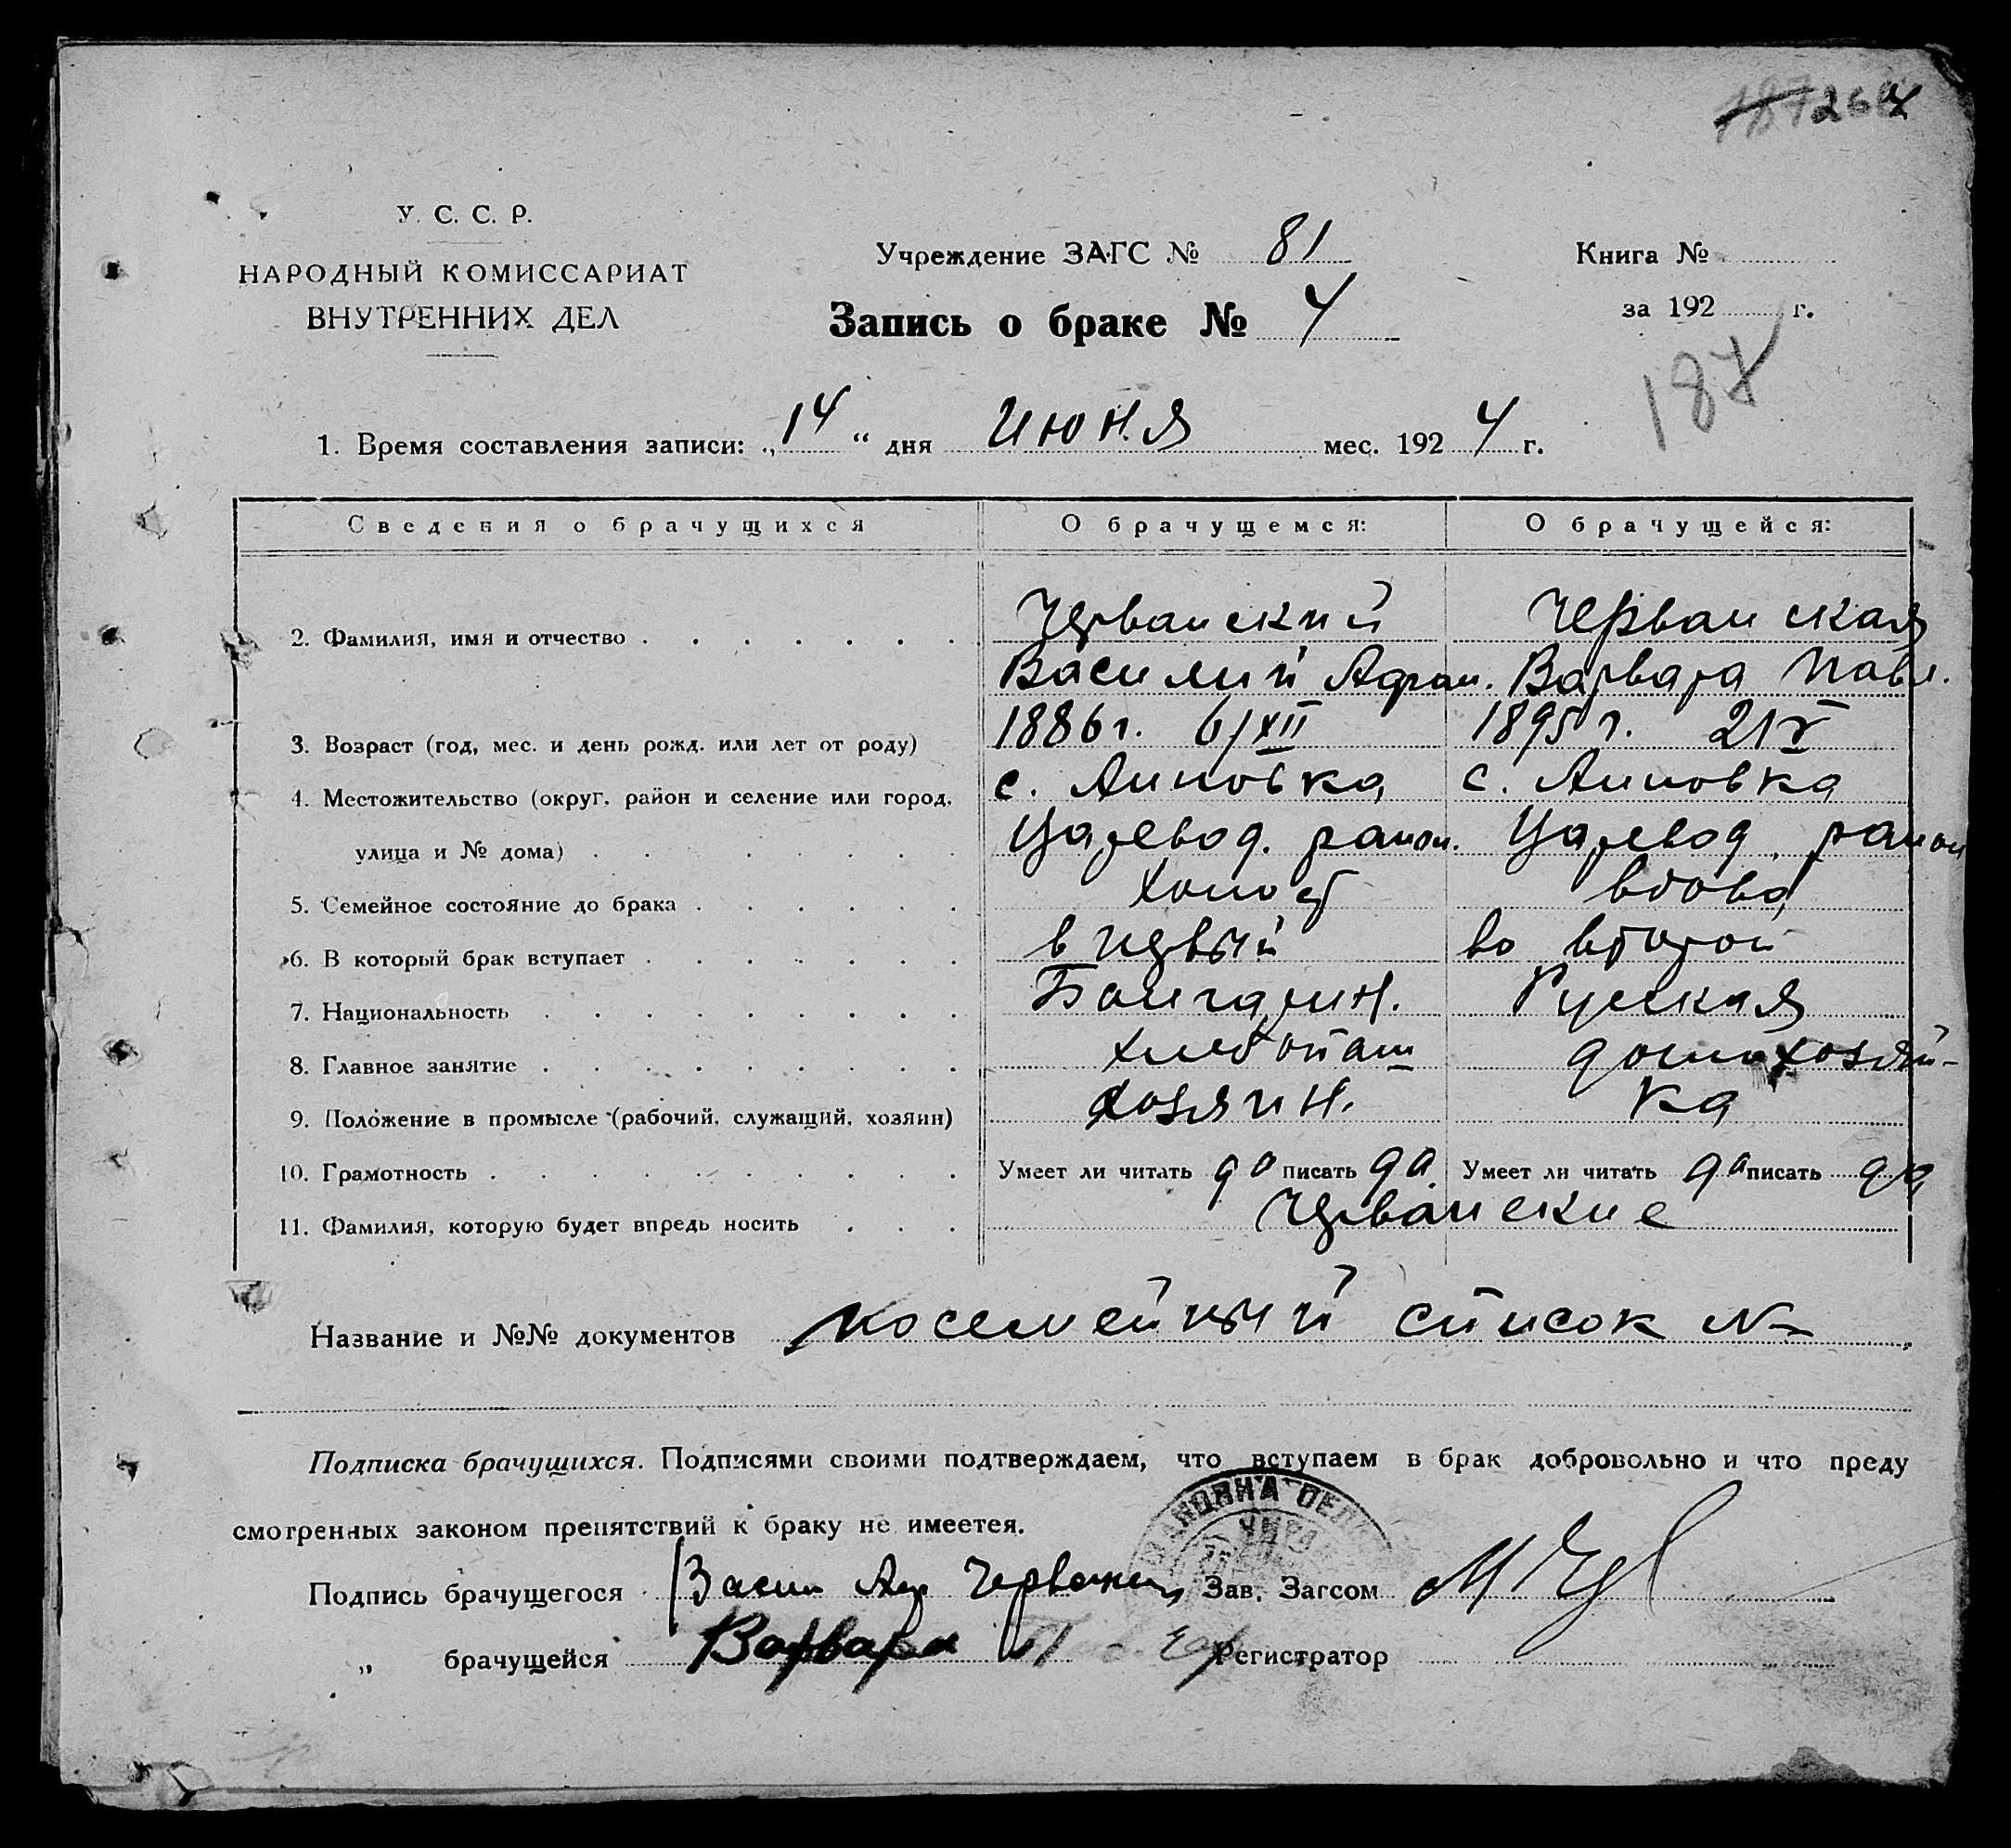 187 264
У. С. С. Р.
НАРОДНЫЙ КОМИССАРИАТ
ВНУТРЕННИХ ДЕЛ
Учреждение ЗАГС № 81
Книга №
Запись о браке № 4
за 192 г.
187
1. Время составления записи: „14“ дня июня мес. 1924 г.
Сведения о брачущихся О брачущемся: О брачущейся:
2. Фамилия, имя и отчество Червански й Черванская
Василий Адриан. Варвара Павл.
3. Возраст (год, мес. и день рожд. или лет от роду) 1886 г. 6/XII 1895 г. 21 V
4. Местожительство (округ, район и селение или город, с. Липовка с. Липовка
улица и № дома) Царевод. район. Царевод. район
5. Семейное состояние до брака холост вдова
6. В который брак вступает в первый во второй
7. Национальность Болгарин. Русская
8. Главное занятие хлебопаш домохозяй-
9. Положение в промысле (рабочий, служащий, хозяин) хозяин. ка
10. Грамотность Умеет ли читать да писать да Умеет ли читать да писать да
11. Фамилия, которую будет впредь носить Черванские
Название и №№ документов посемейный список №
Подписка брачущихся. Подписями своими подтверждаем, что вступаем в брак добровольно и что преду
смотренных законом препятствий к браку не имеетея.
Подпись брачущегося Васил Адр Червански Зав. Загсом
„ брачущейся Варвара П Регистратор